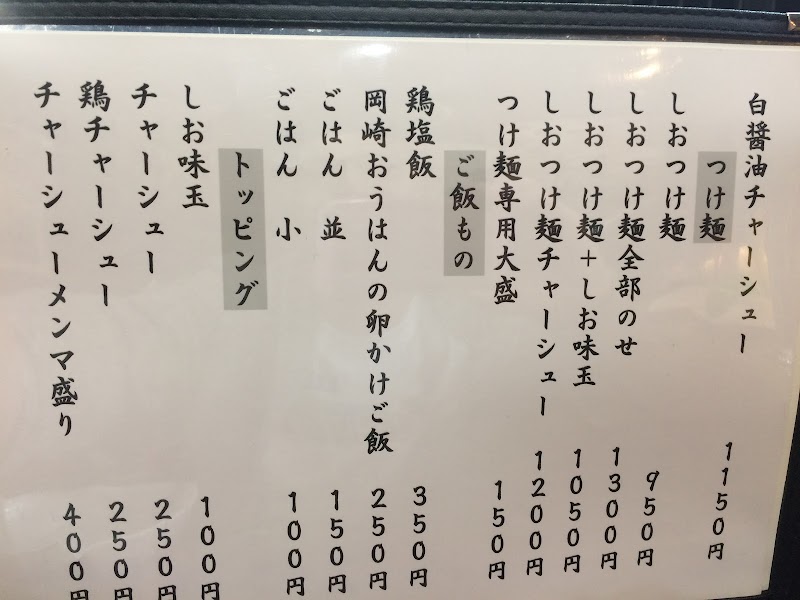 白醤油チャーシュー 1150円
つけ麺
しおつけ麺 950円
しおつけ麺全部のせ 1300円
しおつけ麺+しお味玉 1050円
しおつけ麺チャーシュー 1200円
つけ麺専用大盛 150円
ご飯もの
鶏塩飯 350円
岡崎おうはんの卵かけご飯 250円
ごはん 並 150円
ごはん 小 100円
トッピング
しお味玉 100円
チャーシュー 250円
鶏チャーシュー 250円
チャーシューメンマ盛り 400円